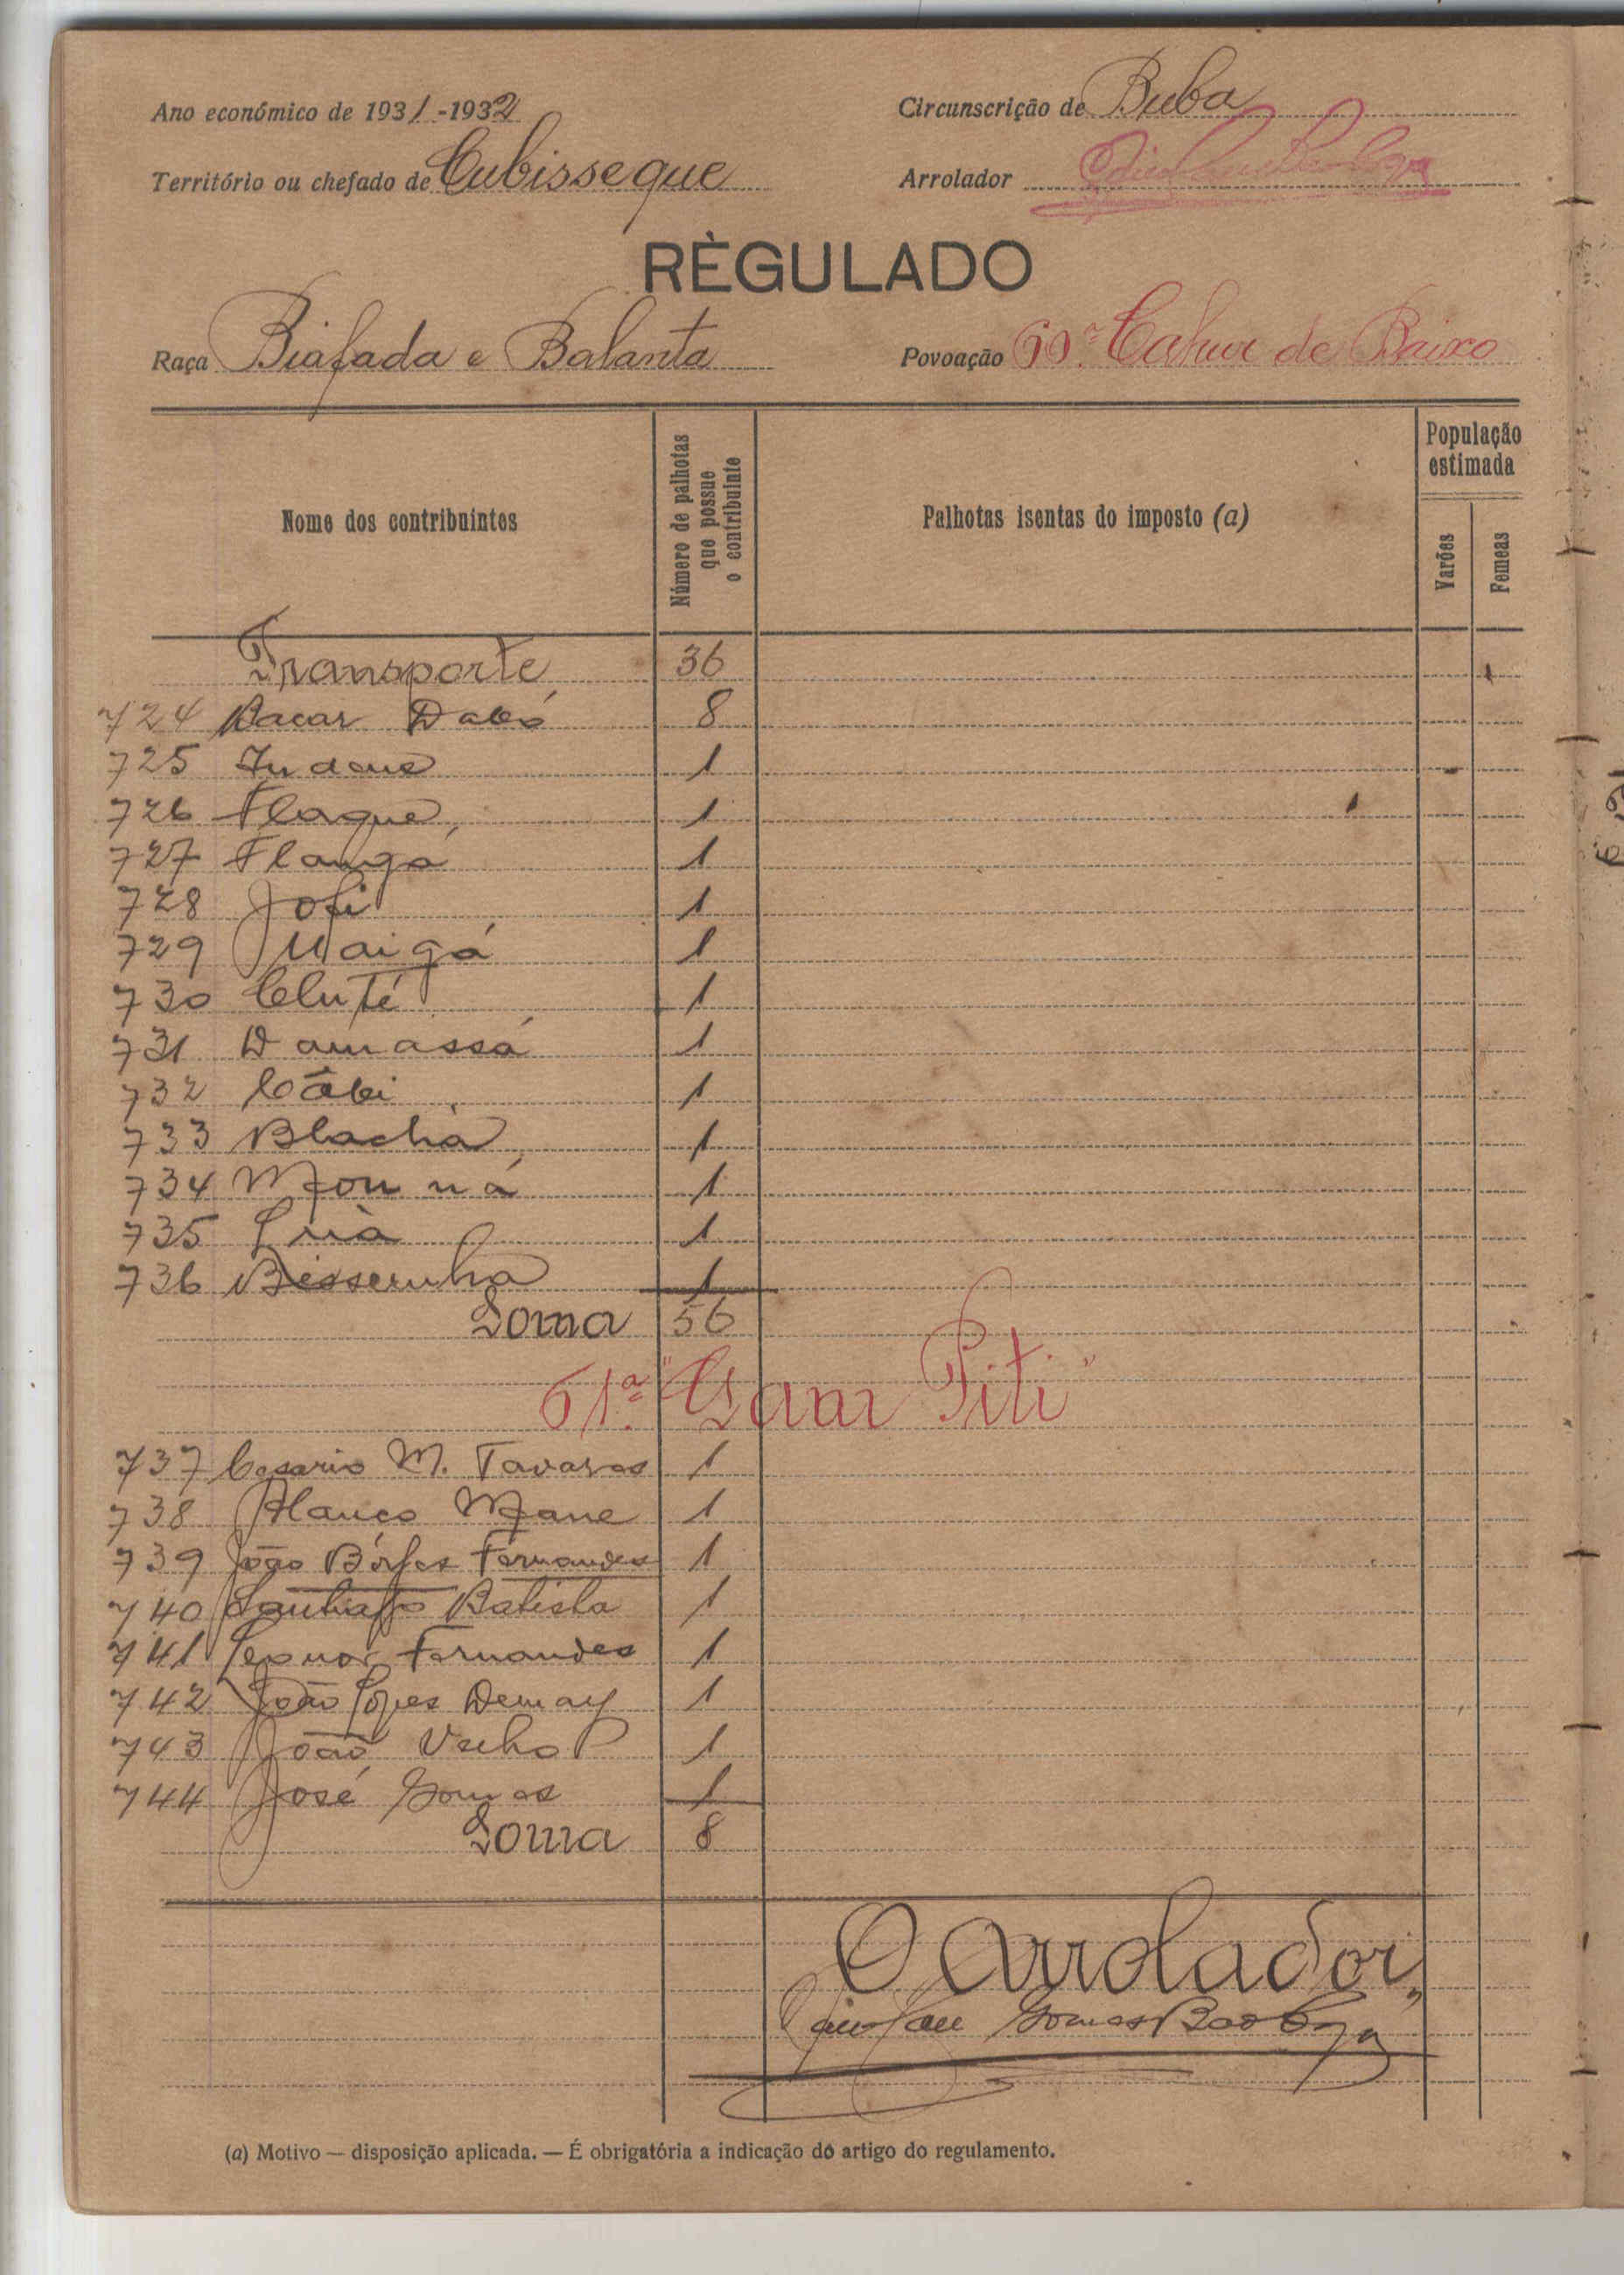 Ano económico de 1931-1932
Circunscrição de Buba
Território ou chefado de Cubisseque
Arrolador
RÈGULADO
Raça Biafada e Balanta
Povoação 60.ª Cahur de Baixo
Nome dos contribuintes
Número de palhotas que possue o contribuinte
Palhotas isentas do imposto (a)
População estimada
Varões
Femeas
Transporte 36
724 Bacar Dabó 8
725 1
726 Flaque 1
727 Flanga 1
728 Jofi 1
729 Uaigá 1
730 Cluté 1
731 Damassá 1
732 Cābi 1
733 Blachà 1
734 Mon ná 1
735 1
736 1
Soma 56
61.ª "Gam Piti"
737 Cesario M. Tavares 1
738 Mane 1
739 João Fernandes 1
740 Santiago Batista 1
741 Leonor Fernandes 1
742 João Lopes Demay 1
743 João 1
744 José Gomes 1
Soma 8
O Arrolador,
Gomes Barboza
(a) Motivo — disposição aplicada. — É obrigatória a indicação do artigo do regulamento.